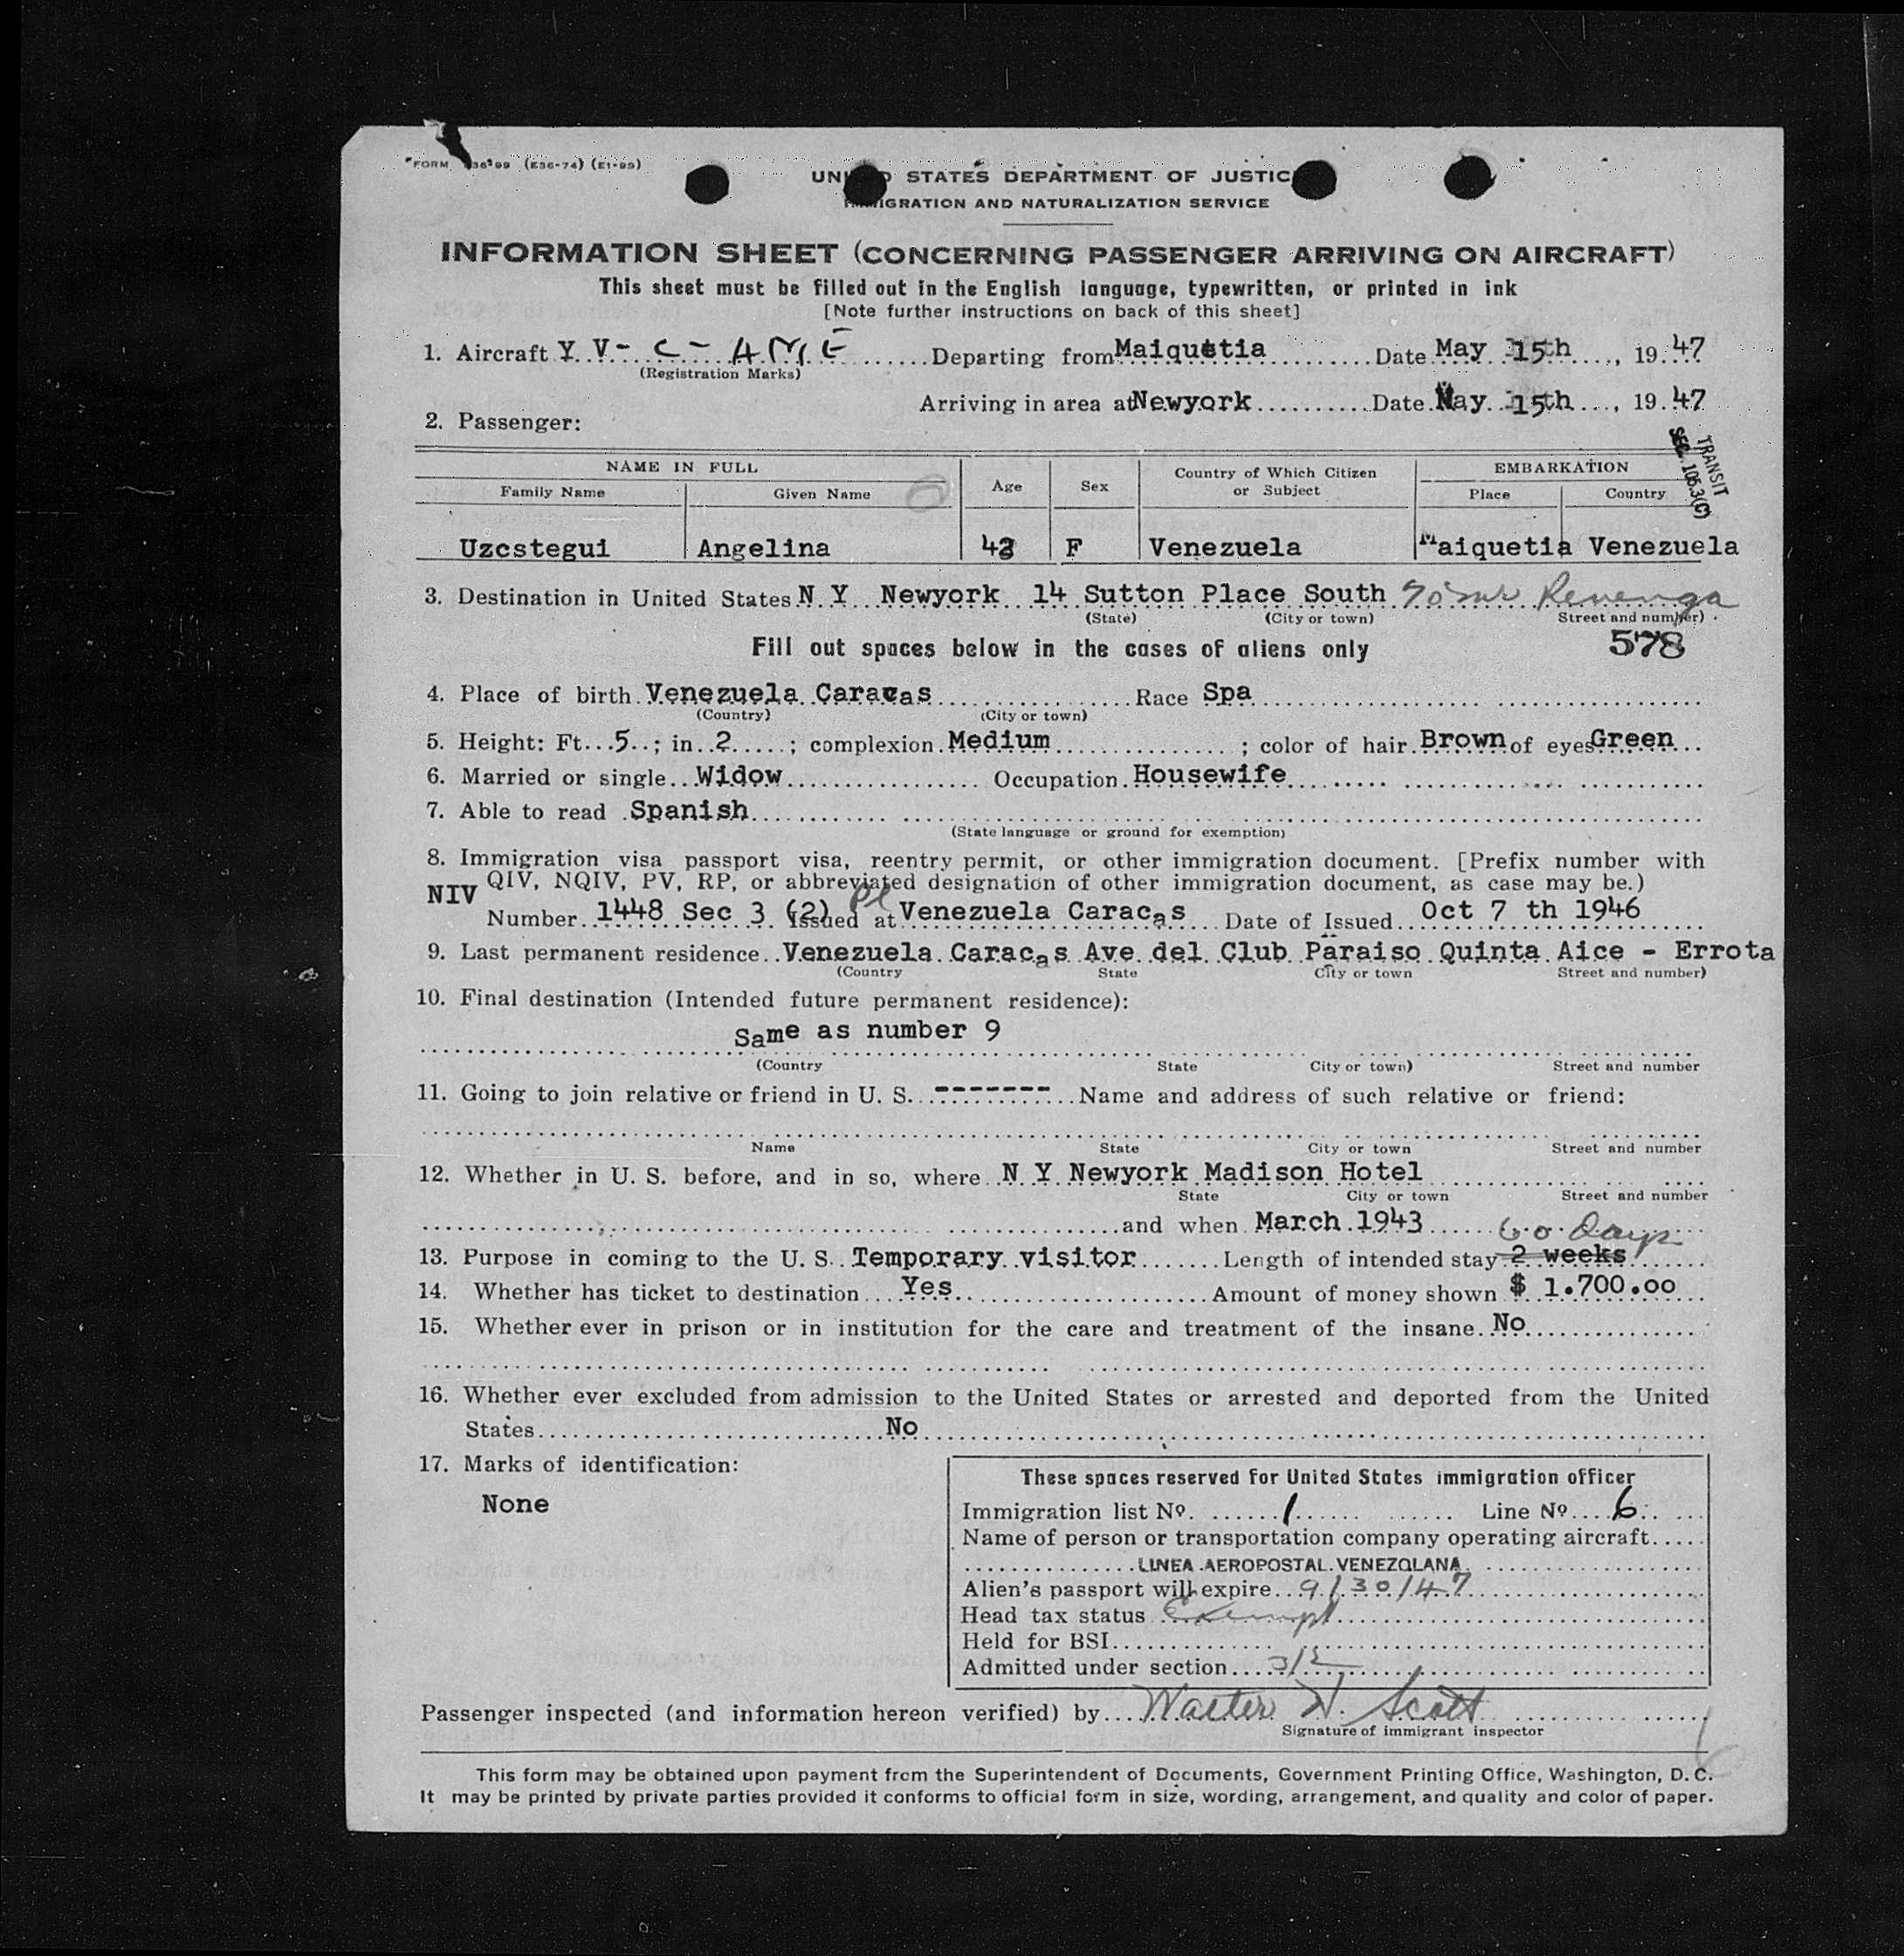 FORM (E36-74) (E1-99)
STATES DEPARTMENT OF JUSTICE
IMMIGRATION AND NATURALIZATION SERVICE
INFORMATION SHEET (CONCERNING PASSENGER ARRIVING ON AIRCRAFT)
This sheet must be filled out in the English language, typewritten, or printed in ink
[Note further instructions on back of this sheet]
1. Aircraft Y V - C - AME Departing from Maiquetia Date May 15th, 19 47
(Registration Marks)
Arriving in area at Newyork Date May 15th, 19 47
2. Passenger:
TRANSIT
SEC. 105.3(C)
NAME IN FULL Age Sex Country of Which Citizen or Subject EMBARKATION
Family Name Given Name Place Country
Uzcstegui Angelina 43 F Venezuela Maiquetia Venezuela
3. Destination in United States N Y Newyork 14 Sutton Place South Revenga
(State) (City or town) Street and number)
Fill out spaces below in the cases of aliens only 578
4. Place of birth Venezuela Caracas Race Spa
(Country) (City or town)
5. Height: Ft. 5; in. 2; complexion Medium; color of hair Brown of eyes Green
6. Married or single Widow Occupation Housewife
7. Able to read Spanish
(State language or ground for exemption)
8. Immigration visa passport visa, reentry permit, or other immigration document. [Prefix number with
NIV QIV, NQIV, PV, RP, or abbreviated designation of other immigration document, as case may be.)
Number 1448 Sec 3 (2) Issued at Venezuela Caracas Date of Issued Oct 7 th 1946
9. Last permanent residence Venezuela Caracas Ave del Club Paraiso Quinta Aice - Errota
(Country State City or town Street and number)
10. Final destination (Intended future permanent residence):
Same as number 9
(Country State City or town) Street and number
11. Going to join relative or friend in U. S. -------- Name and address of such relative or friend:
Name State City or town Street and number
12. Whether in U. S. before, and in so, where N Y Newyork Madison Hotel
State City or town Street and number
and when March 1943 60 Days
13. Purpose in coming to the U. S. Temporary visitor Length of intended stay 2 weeks
14. Whether has ticket to destination Yes Amount of money shown $ 1.700.00
15. Whether ever in prison or in institution for the care and treatment of the insane No
16. Whether ever excluded from admission to the United States or arrested and deported from the United
States No
17. Marks of identification:
None
These spaces reserved for United States immigration officer
Immigration list No. 1 Line No. 6
Name of person or transportation company operating aircraft
LINEA AEROPOSTAL VENEZOLANA
Alien's passport will expire 9/30/47
Head tax status Exempt
Held for BSI
Admitted under section 3/2
Passenger inspected (and information hereon verified) by Walter W. Scott
Signature of immigrant inspector
This form may be obtained upon payment from the Superintendent of Documents, Government Printing Office, Washington, D. C.
It may be printed by private parties provided it conforms to official form in size, wording, arrangement, and quality and color of paper.